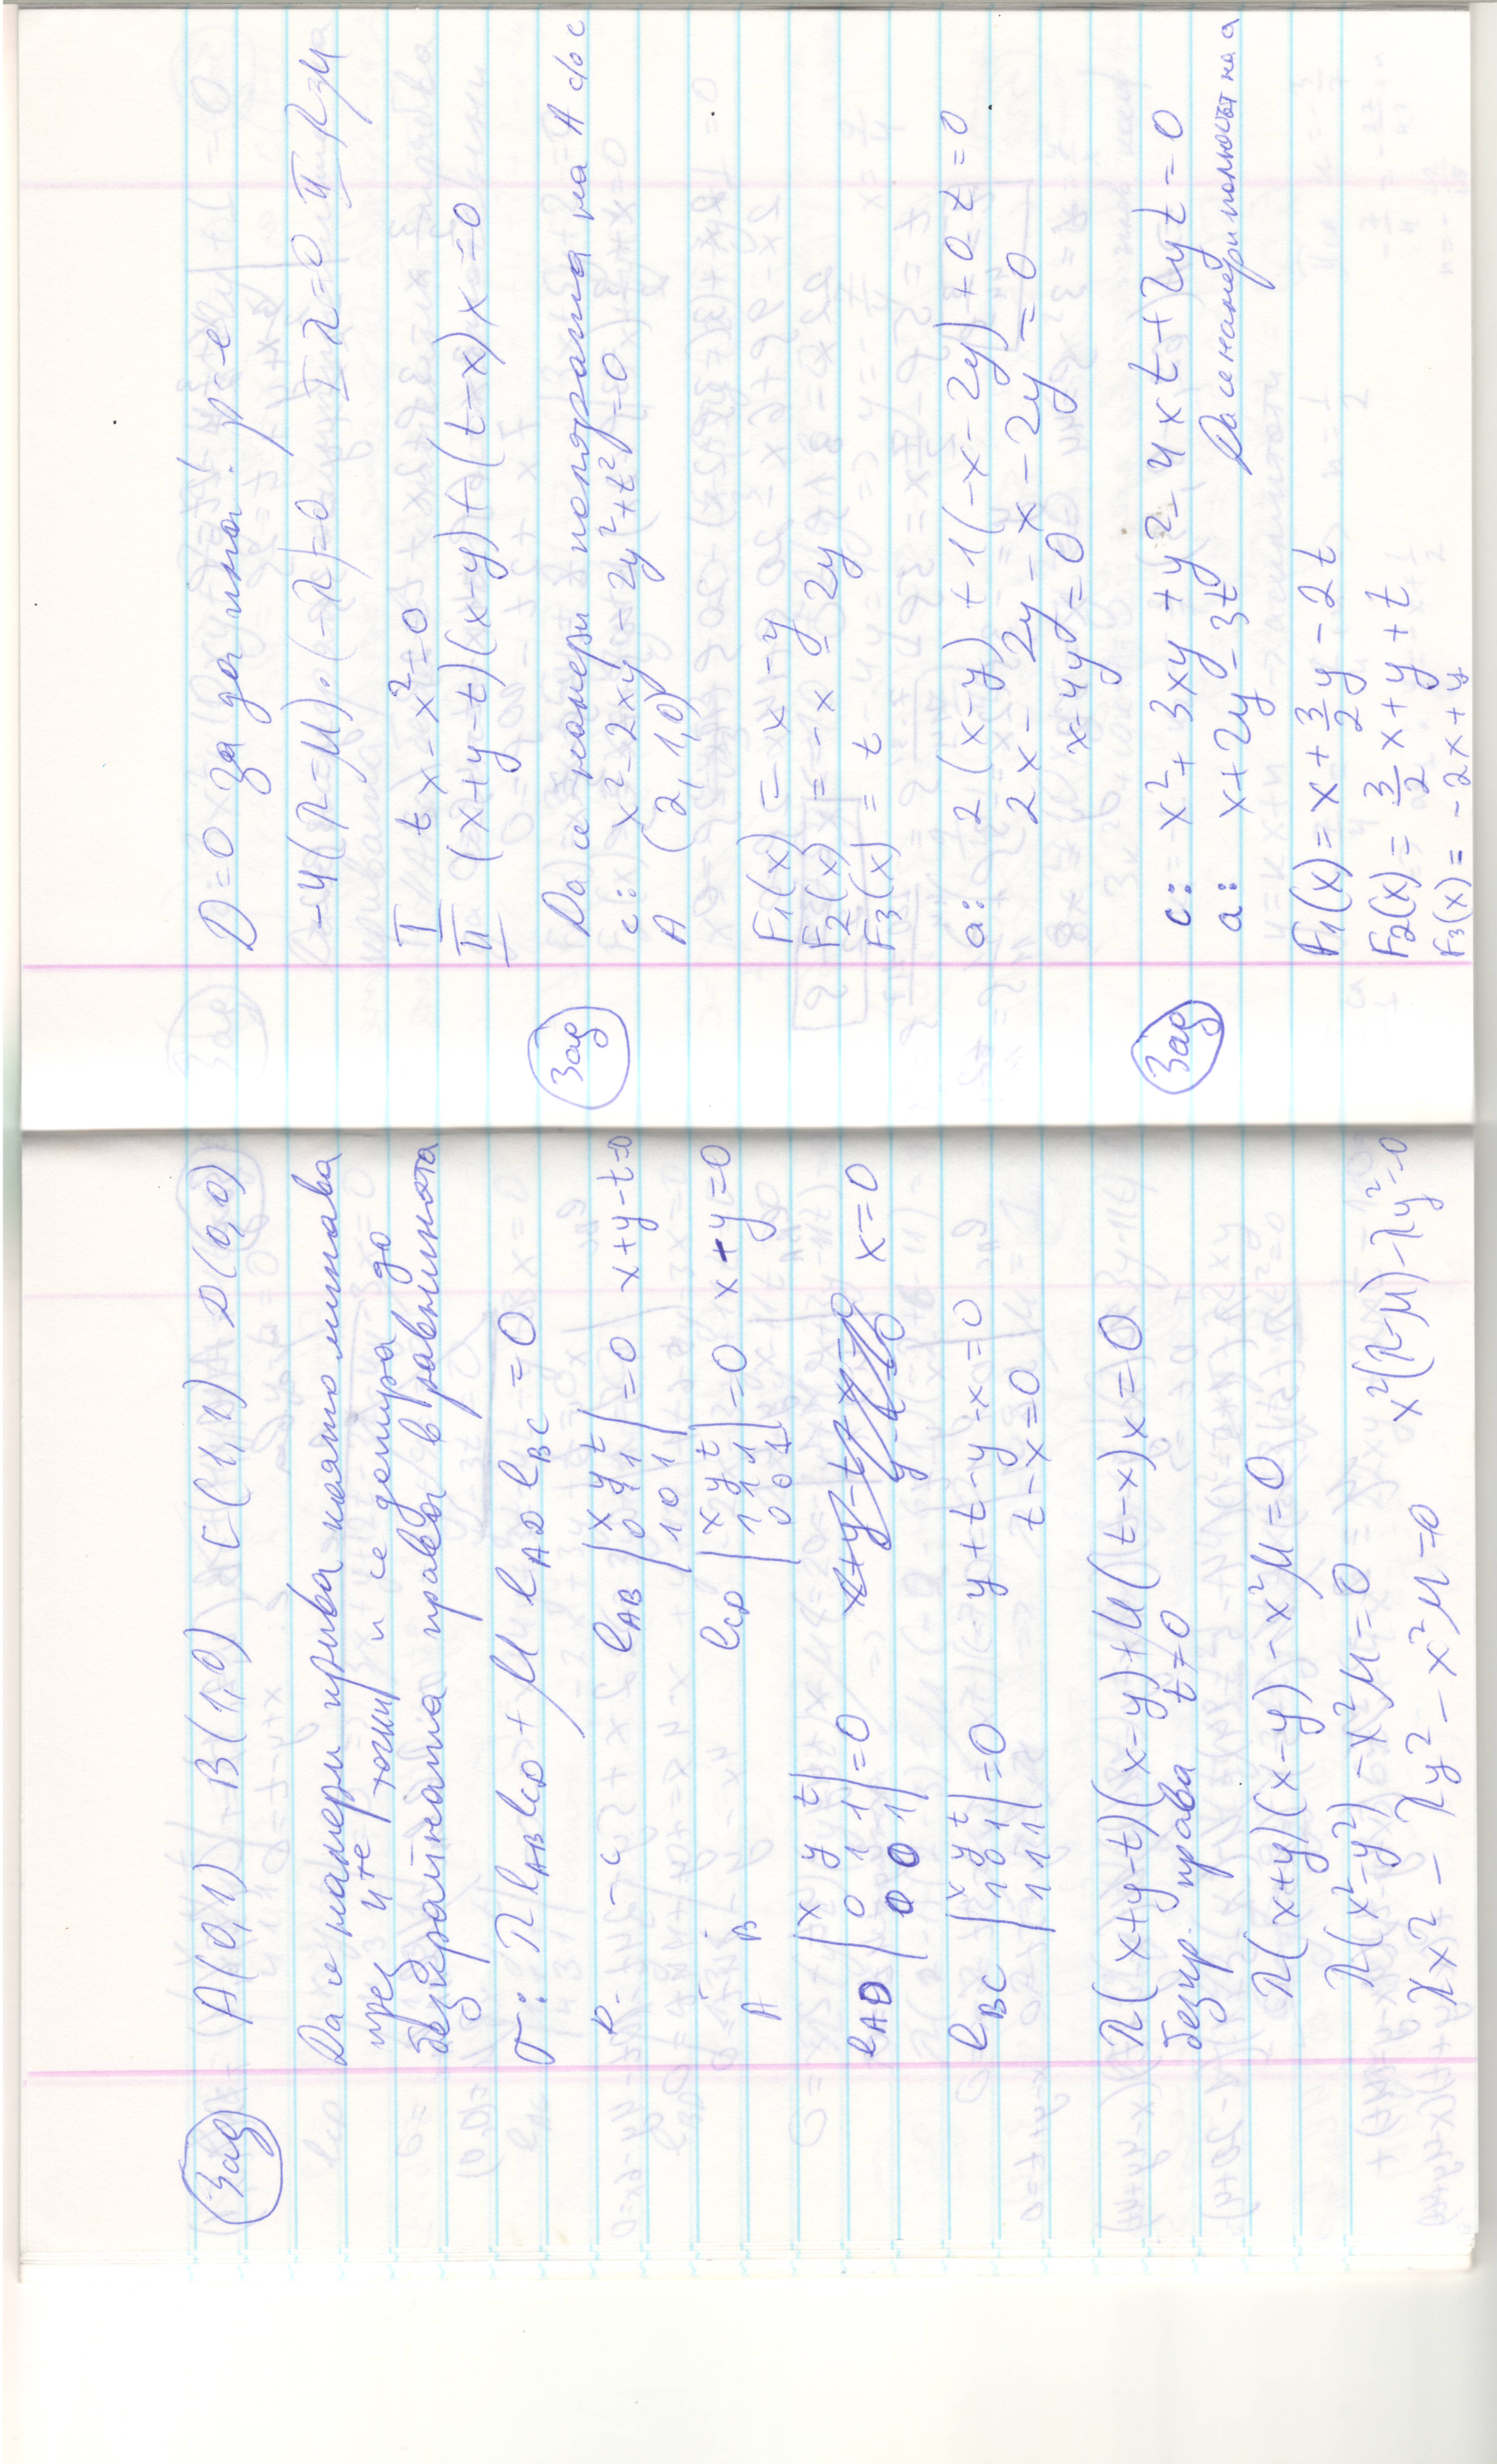 Зад
A(0,1) B(1,0) C(1,1) D(0,0)
Да се намери крива която минава
през 4те точки и се допира до
безкрайната права в равнината
σ: λ l_AB l_CD + μ l_AD l_BC = 0
l_AB |x y t; 0 1 1; 1 0 1| = 0 x+y-t=0
A B
l_CD |x y t; 1 1 1; 0 0 1| = 0 x-y=0
l_AD |x y t; 0 1 1; 0 0 1| = 0 x=0
l_BC |x y t; 1 0 1; 1 1 1| = 0 y+t-y-x=0
t-x=0
λ(x+y-t)(x-y)+μ(t-x)x=0
безкр. права t=0
λ(x+y)(x-y)-x²μ=0
λ(x²-y²)-x²μ=0
λx²-λy²-x²μ=0 x²(λ-μ)-λy²=0
D=0 за да има! р-е
-4(λ-μ).(-λ)=0 I λ=0 II λ=μ
I tx-x²=0
II (x+y-t)(x-y)+(t-x)x=0
Зад
Да се намери полярата на A до c
c: x²-2xy-2y²+t²=0
A (2,1,0)
F₁(x) = x-y
F₂(x) = -x-2y
F₃(x) = t
a: 2(x-y)+1(-x-2y)+0.t=0
2x-2y-x-2y=0
x-4y=0
Зад
c: x²+3xy+y²-4xt+2yt=0
a: x+2y-3t Да се намери полюсът на a
F₁(x) = x+3/2y-2t
F₂(x) = 3/2x+y+t
F₃(x) = -2x+y